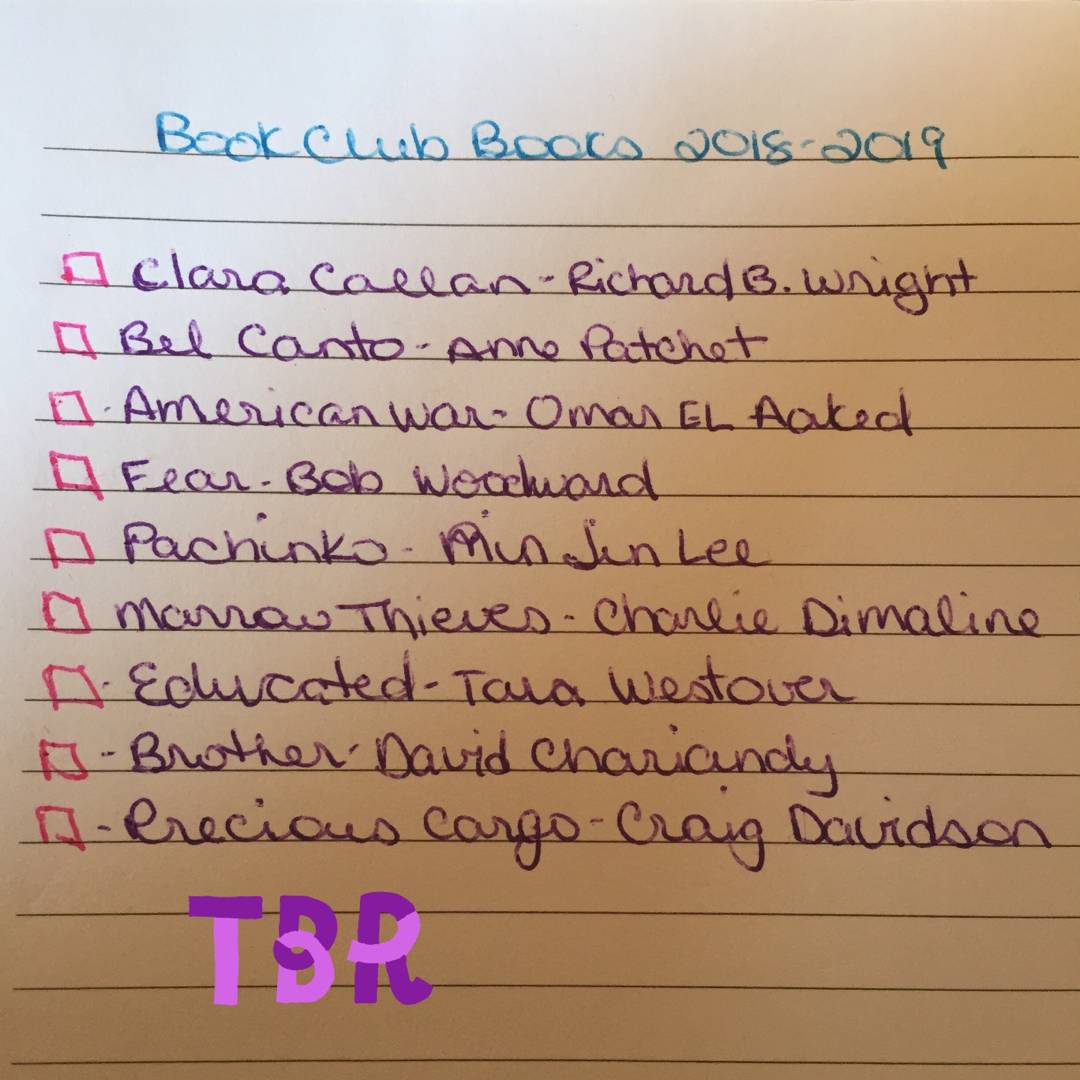 Book Club Books 2018-2019
Clara Callan - Richard B. Wright
Bel Canto - Anne Patchet
American War - Omar EL Aaked
Fear - Bob Woodward
Pachinko - Min Jin Lee
Marrow Thieves - Charlie Dimaline
Educated - Tara Westover
- Brother - David Chariandy
- Precious Cargo - Craig Davidson
TBR